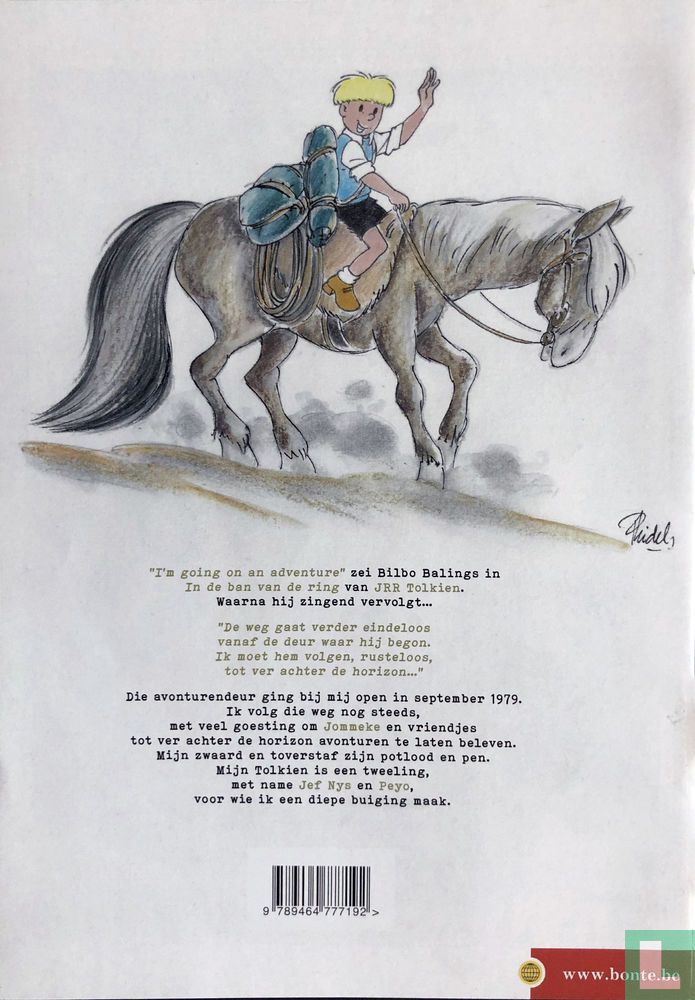 "I'm going on an adventure" zei Bilbo Balings in
In de ban van de ring van JRR Tolkien.
Waarna hij zingend vervolgt...
"De weg gaat verder eindeloos
vanaf de deur waar hij begon.
Ik moet hem volgen, rusteloos,
tot ver achter de horizon..."
Die avonturendeur ging bij mij open in september 1979.
Ik volg die weg nog steeds,
met veel goesting om Jommeke en vriendjes
tot ver achter de horizon avonturen te laten beleven.
Mijn zwaard en toverstaf zijn potlood en pen.
Mijn Tolkien is een tweeling,
met name Jef Nys en Peyo,
voor wie ik een diepe buiging maak.
9 789464 777192 >
www.bonte.be